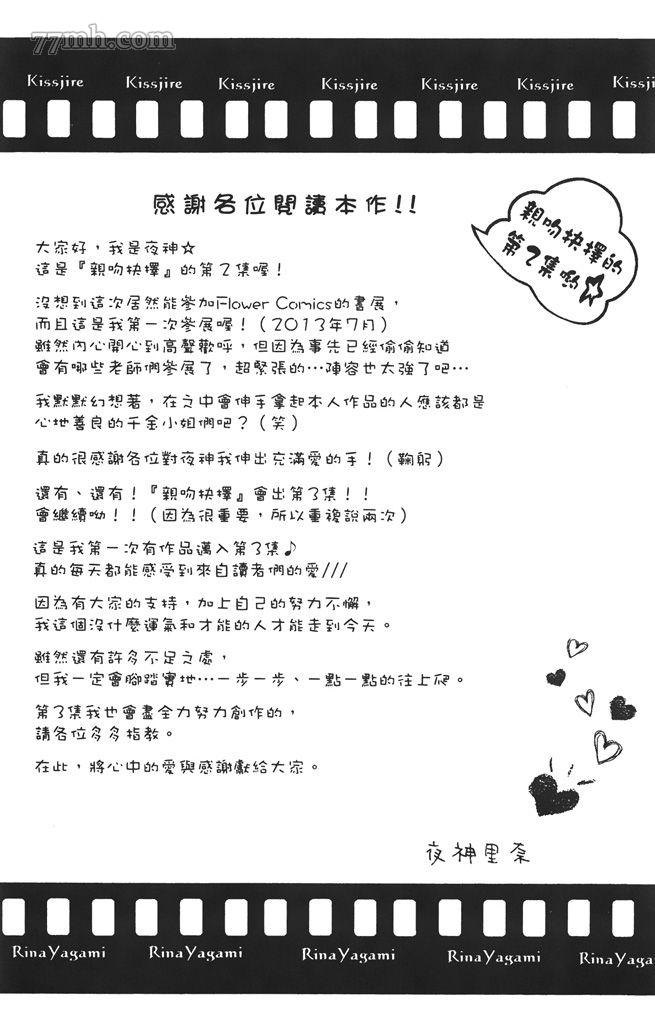 77mh.com
Kissjire Kissjire Kissjire Kissjire Kissjire Kissjire Kissji
感謝各位閱讀本作!!
親吻抉擇的
第2集喲☆
大家好，我是夜神☆
這是『親吻抉擇』的第2集喔！
沒想到這次居然能參加Flower Comics的書展，
而且這是我第一次參展喔！（2013年7月）
雖然內心開心到高聲歡呼，但因為事先已經偷偷知道
會有哪些老師們參展了，超緊張的…陣容也太強了吧…
我默默幻想著，在之中會伸手拿起本人作品的人應該都是
心地善良的千金小姐們吧？（笑）
真的很感謝各位對夜神我伸出充滿愛的手！（鞠躬）
還有、還有！『親吻抉擇』會出第3集！！
會繼續呦！！（因為很重要，所以重複說兩次）
這是我第一次有作品邁入第3集♪
真的每天都能感受到來自讀者們的愛///
因為有大家的支持，加上自己的努力不懈，
我這個沒什麼運氣和才能的人才能走到今天。
雖然還有許多不足之處，
但我一定會腳踏實地…一步一步、一點一點的往上爬。
第3集我也會盡全力努力創作的，
請各位多多指教。
在此，將心中的愛與感謝獻給大家。
夜神里奈
RinaYagami RinaYagami RinaYagami RinaYagami RinaYaga